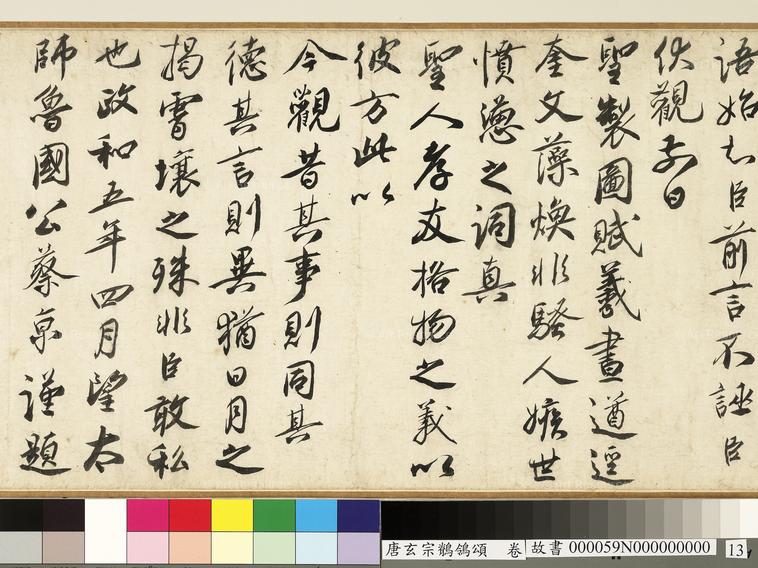 語始知臣前言不誣臣
伏觀前日
聖製圖賦羲畫遒逕
奎文藻煥非騷人嫉世
憤懣之詞真
聖人孝友格物之義以
彼方此以
今觀昔其事則同其
德其言則異猶日月之
揭霄壤之殊非臣敢私
也政和五年四月望太
師魯國公蔡京謹題
唐玄宗鶺鴒頌 卷 故書 000059N000000000 13